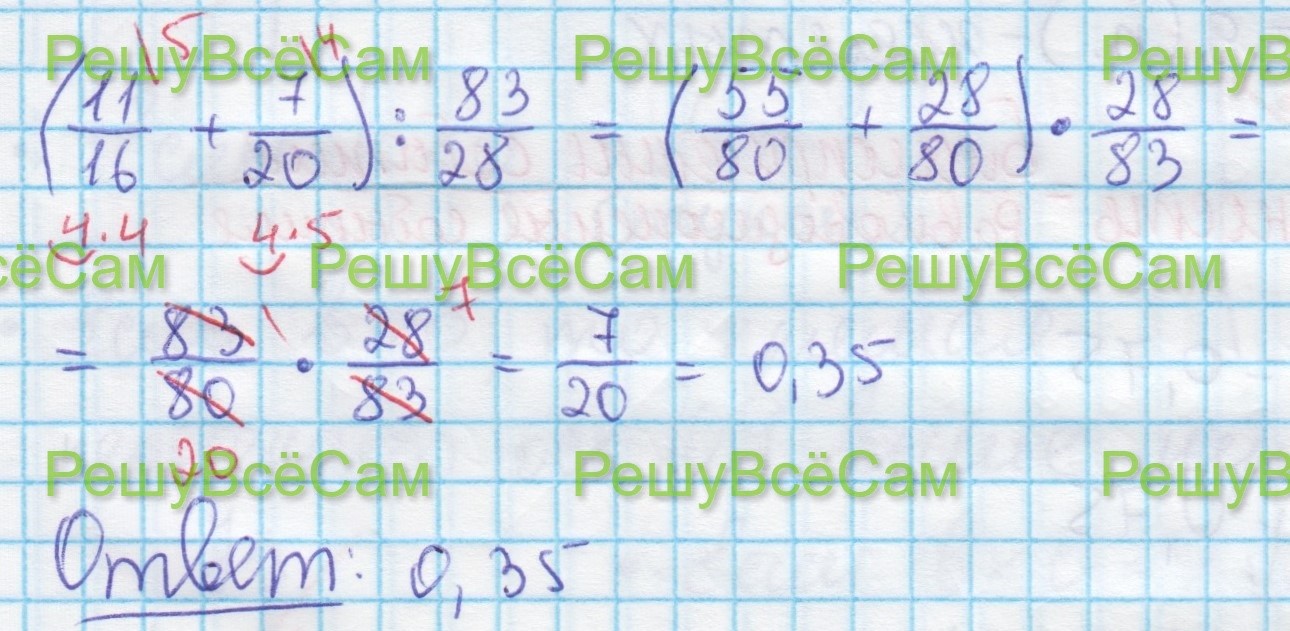 РешуВсёСам РешуВсёСам РешуВ
(11/16 \5 + 7/20 \4) : 83/28 = (55/80 + 28/80) • 28/83 =
4·4 4·5
сёСам РешуВсёСам РешуВсёСам
= 83/80 • 28/83 = 7/20 = 0,35
1 7
20
РешуВсёСам РешуВсёСам РешуВ
Ответ: 0,35